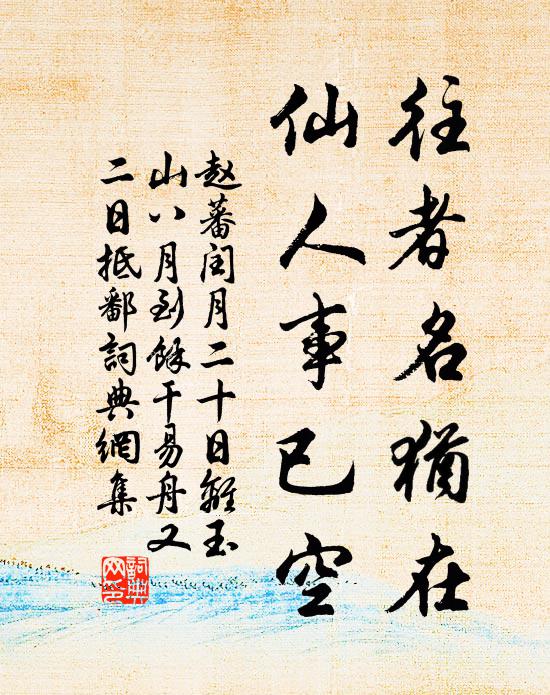 往者名犹在
仙人事已空
赵蕃闰月二十日離玉
山八月到馀干易舟又
二日抵鄱詞典網集